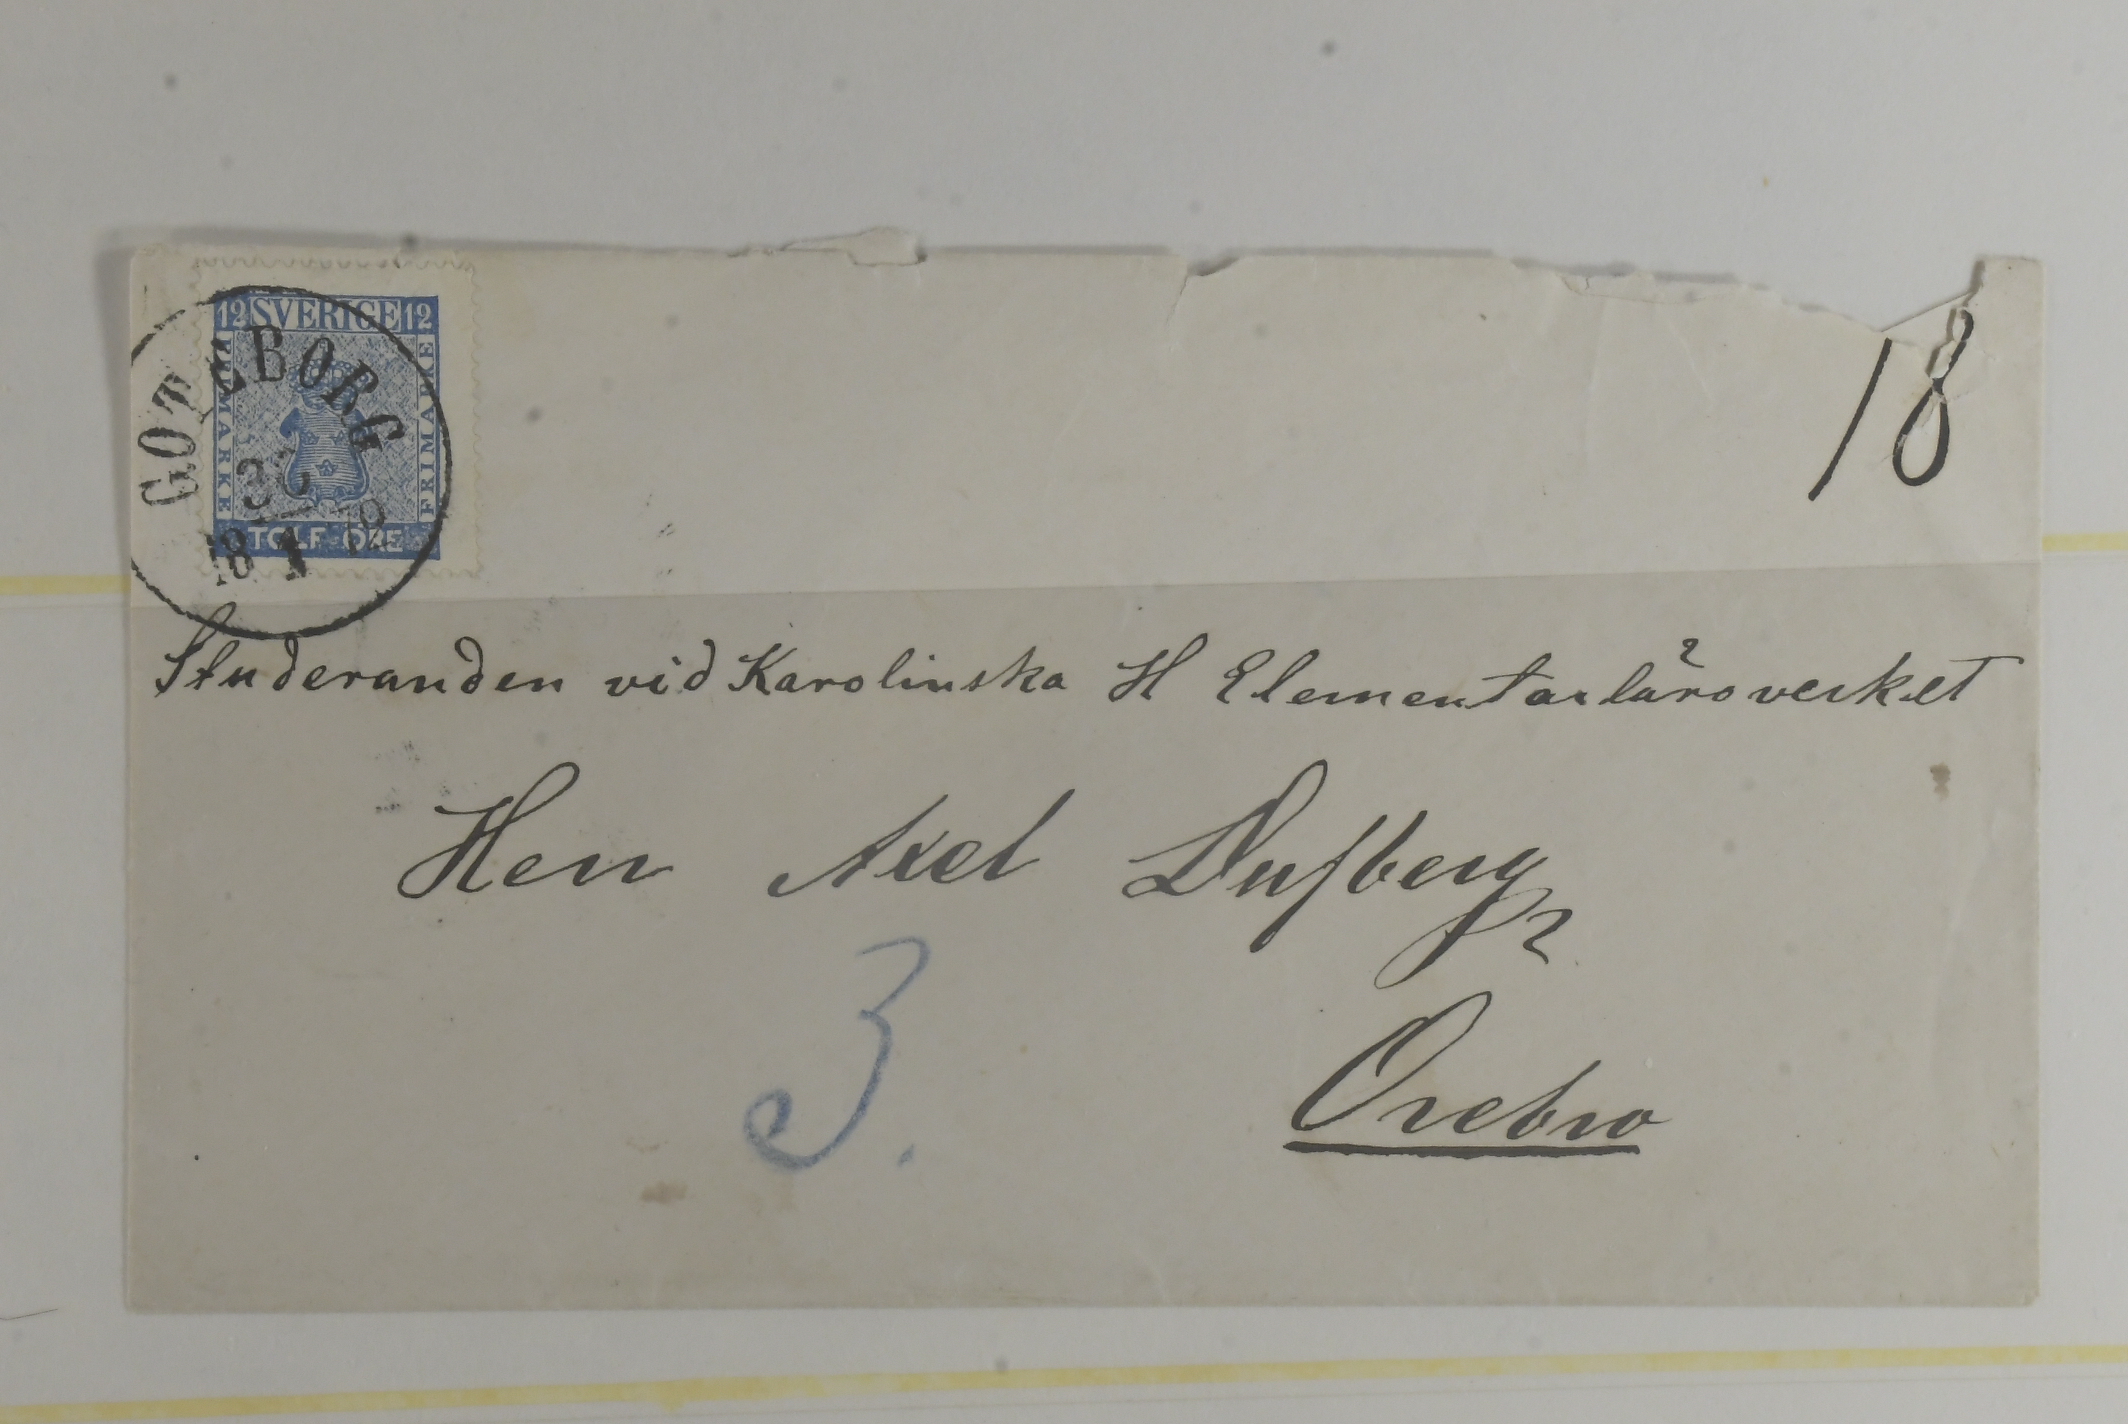 12 SVERIGE 12
FRIMÄRKE
FRIMÄRKE
TOLF ÖRE
GÖTEBORG
18
18
Studeranden vid Karolinska H Elementarläroverket
Herr Axel Dufberg
3.
Örebro